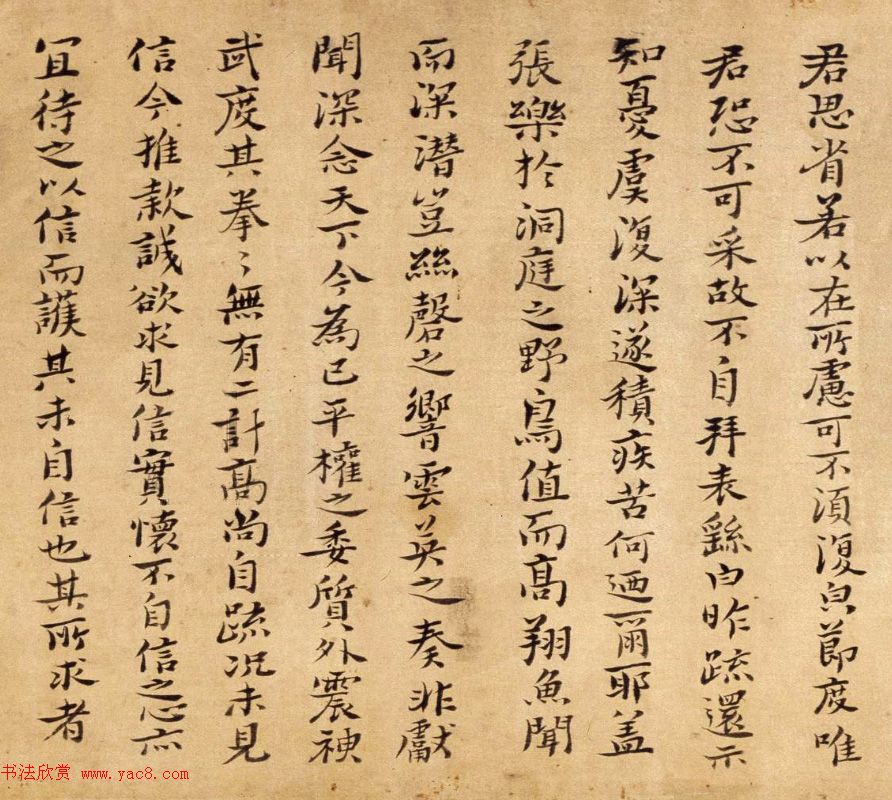 君思省若以在所慮可不須復皃節度唯
君恐不可采故不自拜表繇白昨疏還示
知憂虞復深遂積疾苦何迺爾耶盖
張樂於洞庭之野鳥值而高翔魚聞
而深潛豈絲磬之響雲英之奏非獻
聞深念天下今為已平權之委質外震神
武度其拳〻無有二計高尚自疏况未見
信今推款誠欲求見信實懷不自信之心亦
宜待之以信而護其未自信也其所求者
书法欣赏 www.yac8.com